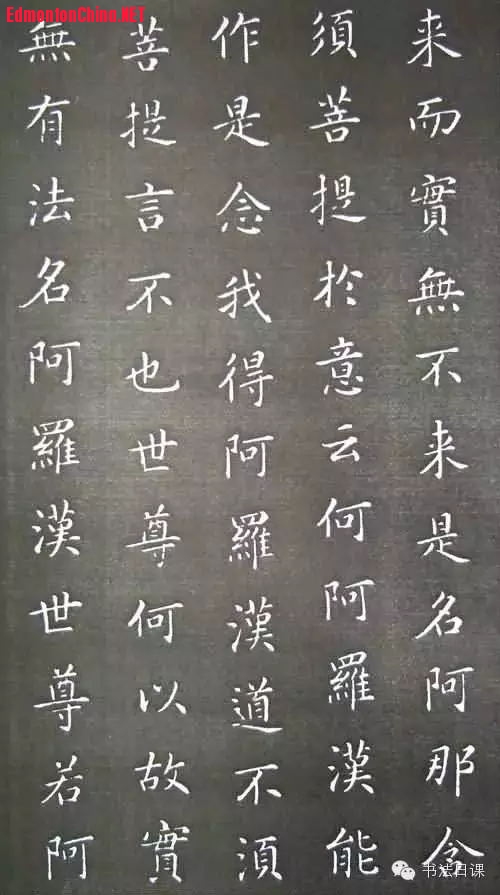 EdmontonChina.NET
来而實無不来是名阿那含
須菩提於意云何阿羅漢能
作是念我得阿羅漢道不須
菩提言不也世尊何以故實
無有法名阿羅漢世尊若阿
书法日课